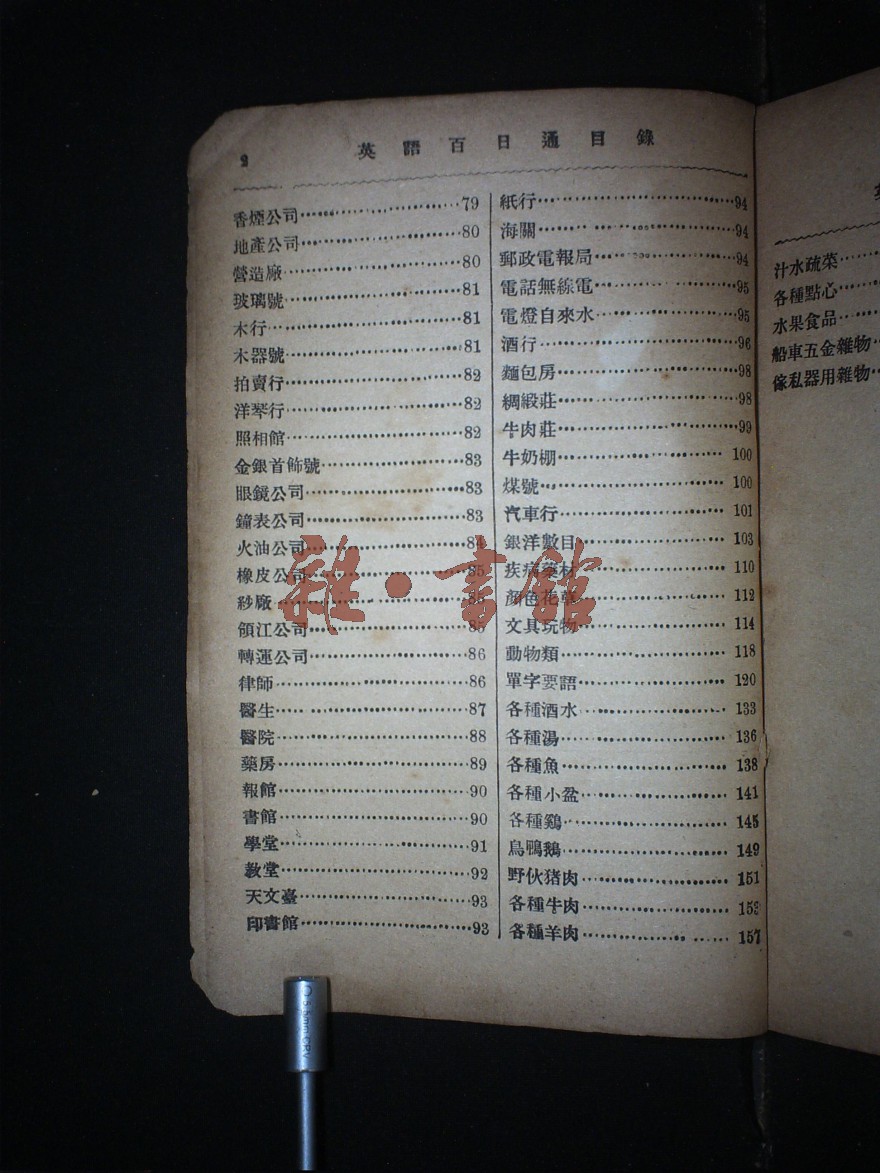 2
英語百日通目錄
香煙公司 79
地產公司 80
營造廠 80
玻璃號 81
木行 81
木器號 81
拍賣行 82
洋琴行 82
照相館 82
金銀首飾號 83
眼鏡公司 83
鐘表公司 83
火油公司 84
橡皮公司 85
紗廠 85
領江公司 85
轉運公司 86
律師 86
醫生 87
醫院 88
藥房 89
報館 90
書館 90
學堂 91
教堂 92
天文臺 93
印書館 93
紙行 94
海關 94
郵政電報局 94
電話無線電 95
電燈自來水 95
酒行 96
麵包房 98
綢緞莊 98
牛肉莊 99
牛奶棚 100
煤號 100
汽車行 101
銀洋數目 103
疾病藥材 110
顏色花草 112
文具玩物 114
動物類 118
單字要語 120
各種酒水 133
各種湯 136
各種魚 138
各種小盆 141
各種鷄 145
鳥鴨鵝 149
野伙猪肉 151
各種牛肉
各種羊肉 157
汁水疏菜
各種點心
水果食品
船車五金雜物
傢私器用雜物
雜·書館